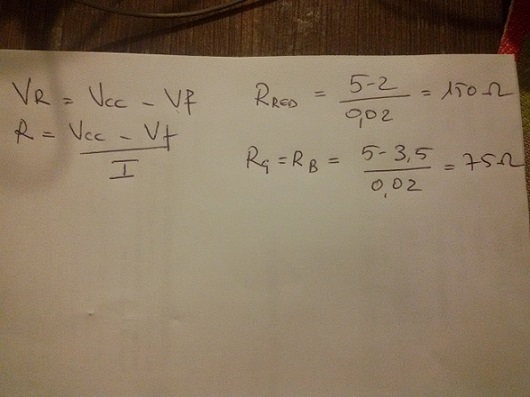 VR = Vcc - Vf
R = Vcc - Vf
I
RRED = 5-2 / 0,02 = 150Ω
RG = RB = 5-3,5 / 0,02 = 75Ω